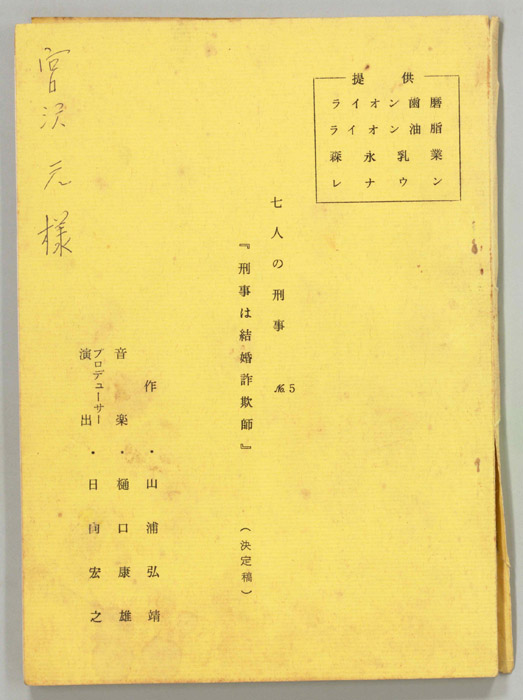 提供
ライオン歯磨
ライオン油脂
森永乳業
レナウン
七人の刑事 №5
『刑事は結婚詐欺師』
(決定稿)
作・山浦弘靖
音楽・樋口康雄
プロデューサー
演出・日向宏之
宮沢元様